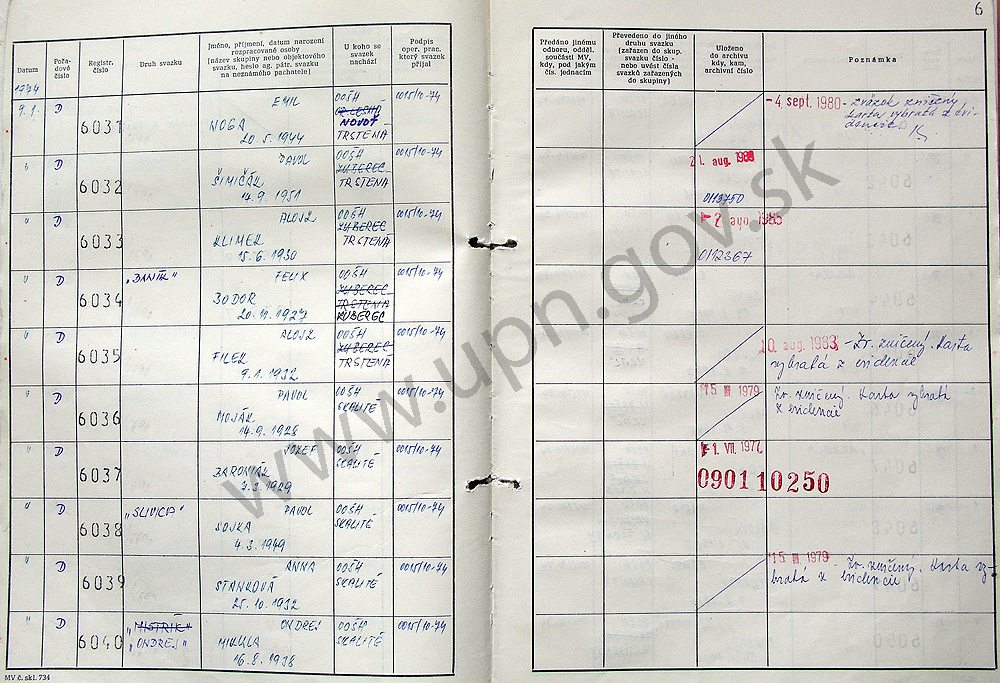 6
Datum
Pořa-
dové
číslo
Registr.
číslo
Druh svazku
Jméno, příjmení, datum narození
rozpracované osoby
(název skupiny nebo objektového
svazku, heslo ag. pátr. svazku
na neznámého pachatele)
U koho se
svazek
nachází
Podpis
oper. prac.
který svazek
přijal
Předáno jinému
odboru, odděl.
součásti MV,
kdy, pod jakým
čís. jednacím
Převedeno do jiného
druhu svazku
(zařazen do skup.
svazku číslo -
nebo uvést čísla
svazků zařazených
do skupiny)
Uloženo
do archivu
kdy, kam,
archivní číslo
Poznámka
1974
9.1. D 6031 EMIL
NOGA
20.5.1944
OOŠH
NOVOŤ
TRSTENA
0015/10-74
- 4 sept. 1980 - zväzok zničený,
karta vybratá z evi-
dencie
" D 6032 PAVOL
ŠIMIČÁK
14.9.1951
OOŠH
ZUBEREC
TRSTENA
0015/10-74
21. aug. 1980
0113750
" D 6033 ALOJZ
KLIMEK
15.6.1930
OOŠH
ZUBEREC
TRSTENA
0015/10-74
- 2 aug. 1983
0112367
" D 6034 "DANÍK" FELIX
BODOR
20.11.1927
OOŠH
ZUBEREC
TRSTENA
ZUBEREC
0015/10-74
" D 6035 ALOJZ
FILEK
9.1.1932
OOŠH
ZUBEREC
TRSTENÁ
0015/10-74
10 aug. 1983 - Zv. zničený. Karta
vybratá z evidencie
" D 6036 PAVOL
MOJÁK
14.9.1928
OOŠH
SKALITÉ
0015/10-74
15 III 1979 Zv. zničený. Karta vybratá
z evidencie
" D 6037 JOZEF
BARONIAK
7.3.1929
OOŠH
SKALITÉ
0015/10-74
- 1. VII. 1977
0901 10250
" D 6038 "SLIVICA" PAVOL
SOJKA
4.3.1949
OOŠH
SKALITÉ
0015/10-74
" D 6039 ANNA
STANKOVÁ
25.10.1932
OOŠH
SKALITÉ
0015/10-74
15 III 1979 Zv. zničený. Karta vy-
bratá z evidencie
" D 6040 "MISTRÍK"
"ONDREJ"
ONDREJ
MIKULA
16.8.1938
OOŠH
SKALITÉ
0015/10-74
MV č. skl. 734
www.upn.gov.sk